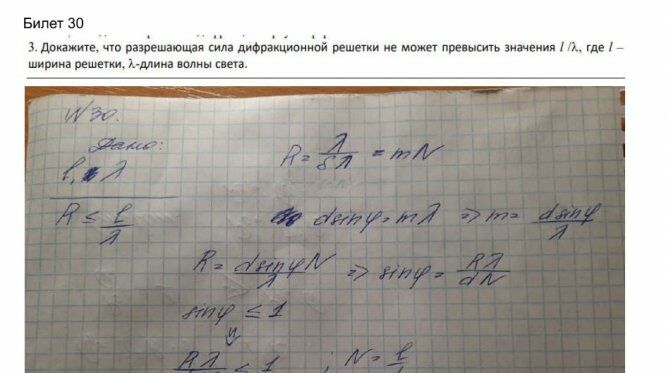 Билет 30
3. Докажите, что разрешающая сила дифракционной решетки не может превысить значения l /λ, где l –
ширина решетки, λ-длина волны света.
N30.
Дано:
l, λ
R ≤ l/λ
R = λ/δλ = mN
dsinφ = mλ => m = dsinφ/λ
R = dsinφN/λ => sinφ = Rλ/dN
sinφ ≤ 1